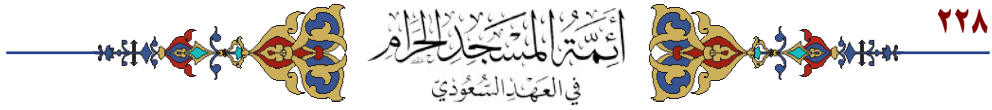 ٢٢٨
أَئِمَّةُ المَسْجِدِ الحَرَامِ
فِي العَهْدِ السُّعُودِيِّ